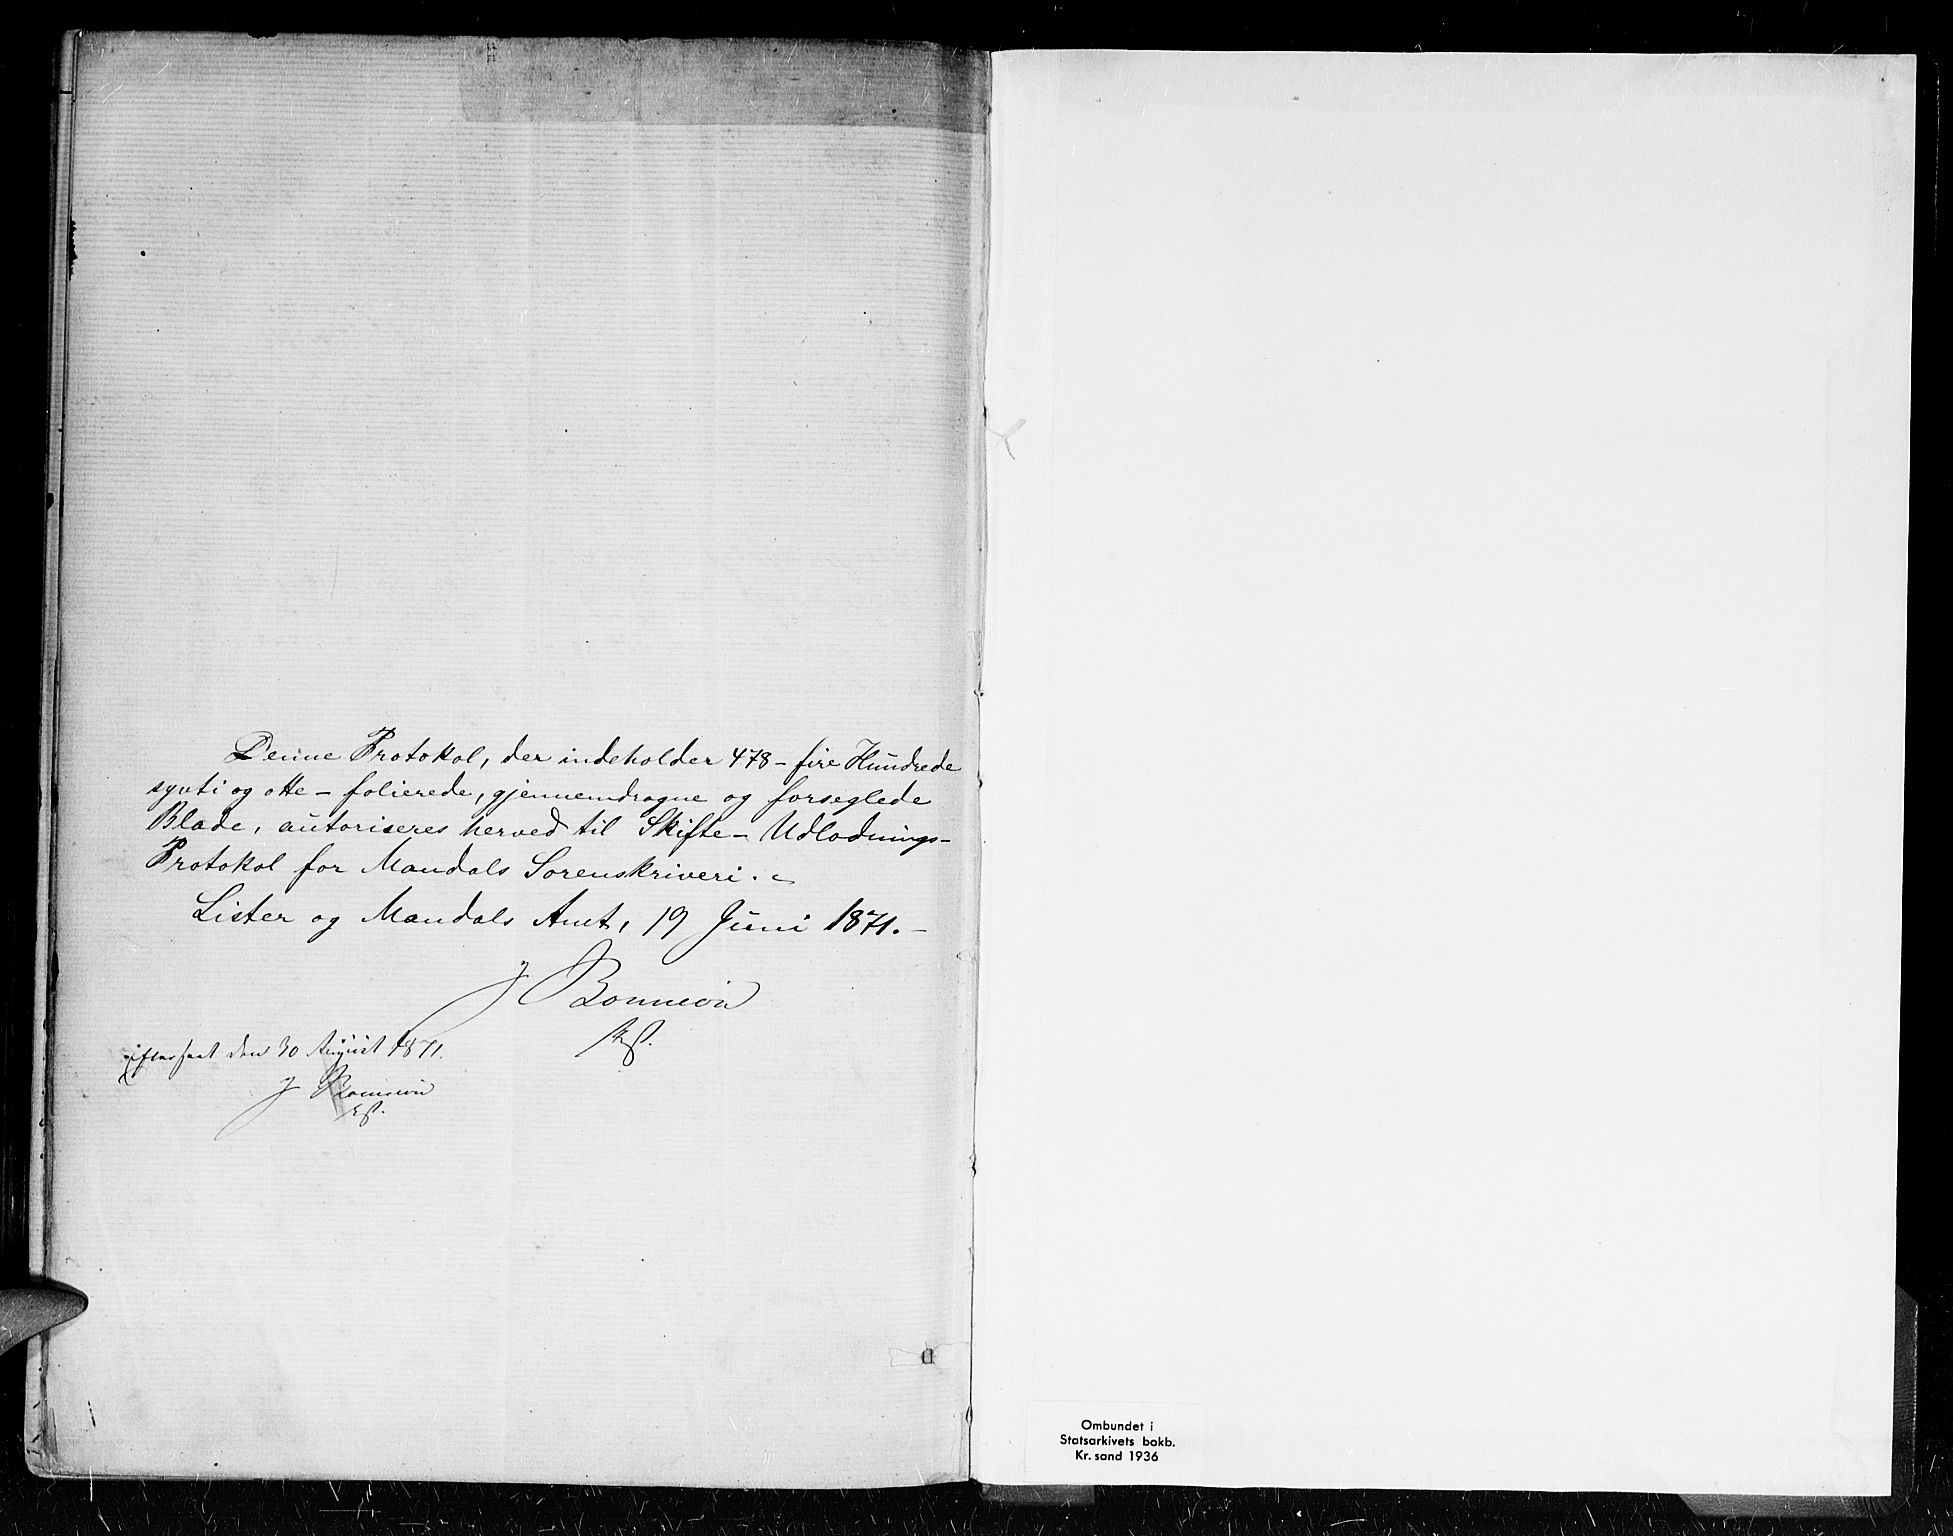 Denne Protokol, der indeholder 478 – fire Hundrede
sytti og otte – folierede, gjennemdragne og forseglede
Blade, autoriseres herved til Skifte – Udlodnings-
Protokol for Mandals Sorenskriveri. –
Lister og Mandals Amt, 19 Juni 1871. –
J Bonnevie
Efterseet den 30 August 1871.
J Bonnevie
Ombundet i
Statsarkivets bokb.
Kr. sand 1936